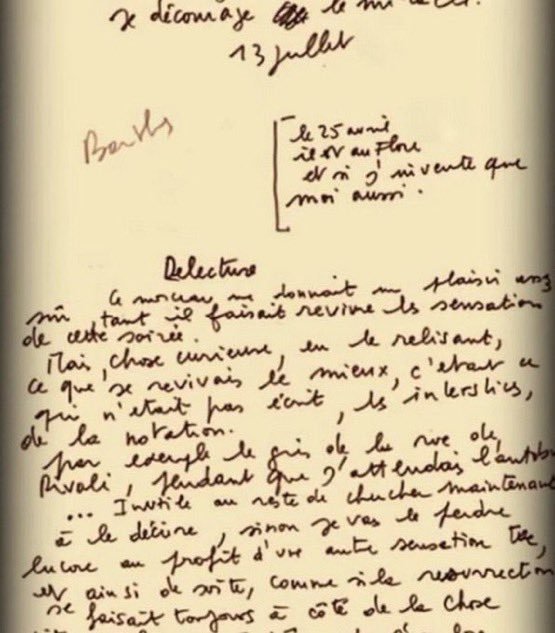 se décourage le
13 juillet
Barthes
le 25 avril
il est au Flore
et si j'invente que
moi aussi.
Relecture
Ce morceau me donnait un plaisir assez
sûr, tant il faisait revivre les sensations
de cette soirée.
Mais, chose curieuse, en le relisant,
ce que je revivais le mieux, c'était ce
qui n'était pas écrit, les interstices,
de la notation.
par exemple le gris de la rue de
Rivoli, pendant que j'attendais l'autobus
... Inutile au reste de chercher maintenant
à le décrire, sinon je vas le perdre
encore au profit d'une autre sensation
et ainsi de suite, comme si la resurrection
se faisait toujours à côté de la chose